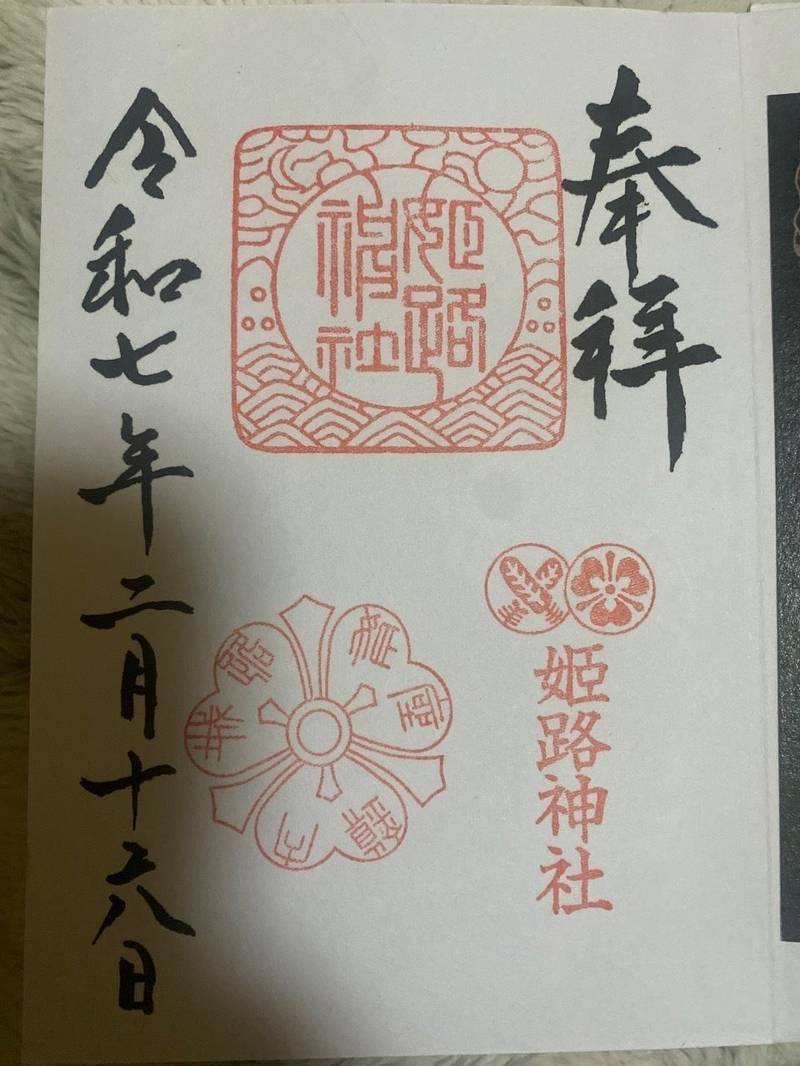 奉拝
姫路
神社
姫路神社
令和七年二月十六日